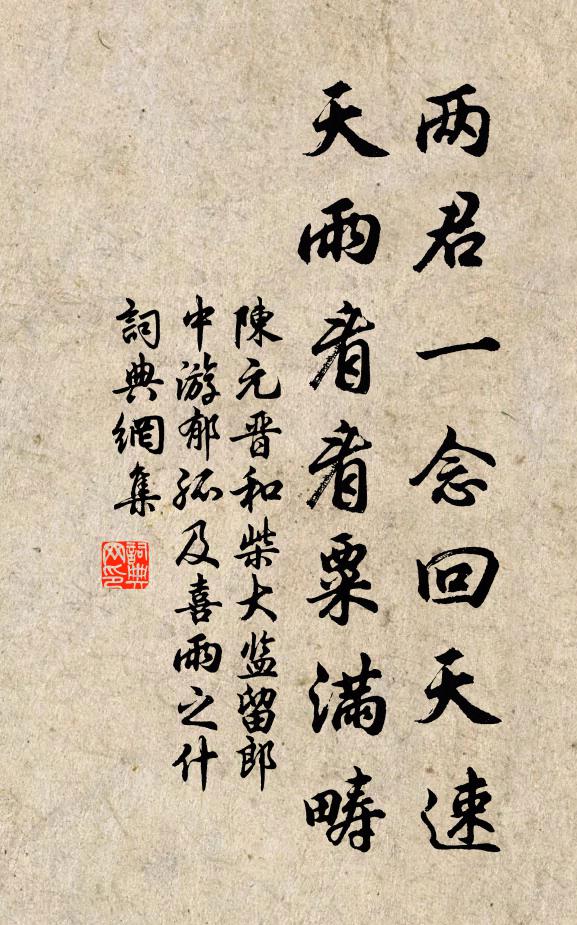 两君一念回天速
天雨看看粟滿畴
陳元晋和柴大监留郎
中游郁孤及喜雨之什
詞典網集
詞典网印